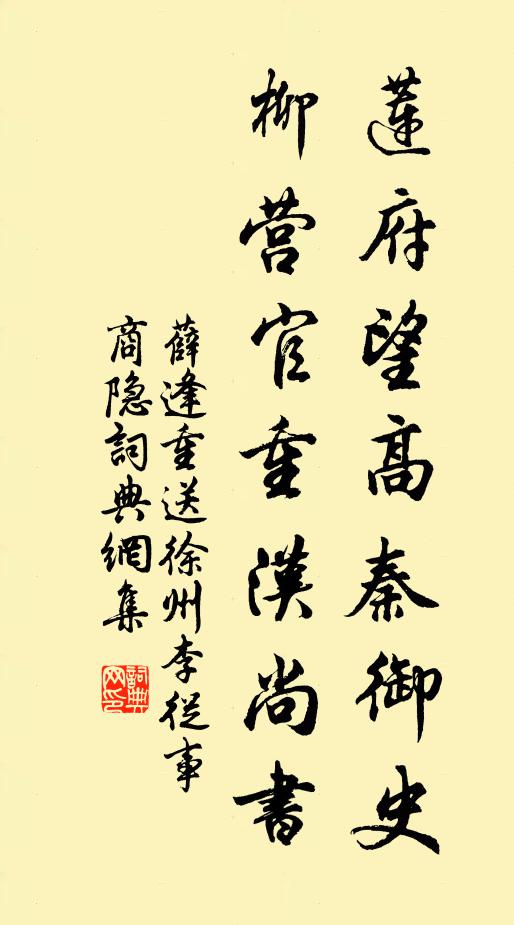 蓮府望高秦御史
柳营官重漢尚書
薛逢重送徐州李從事
商隐詞典網集
詞典网印